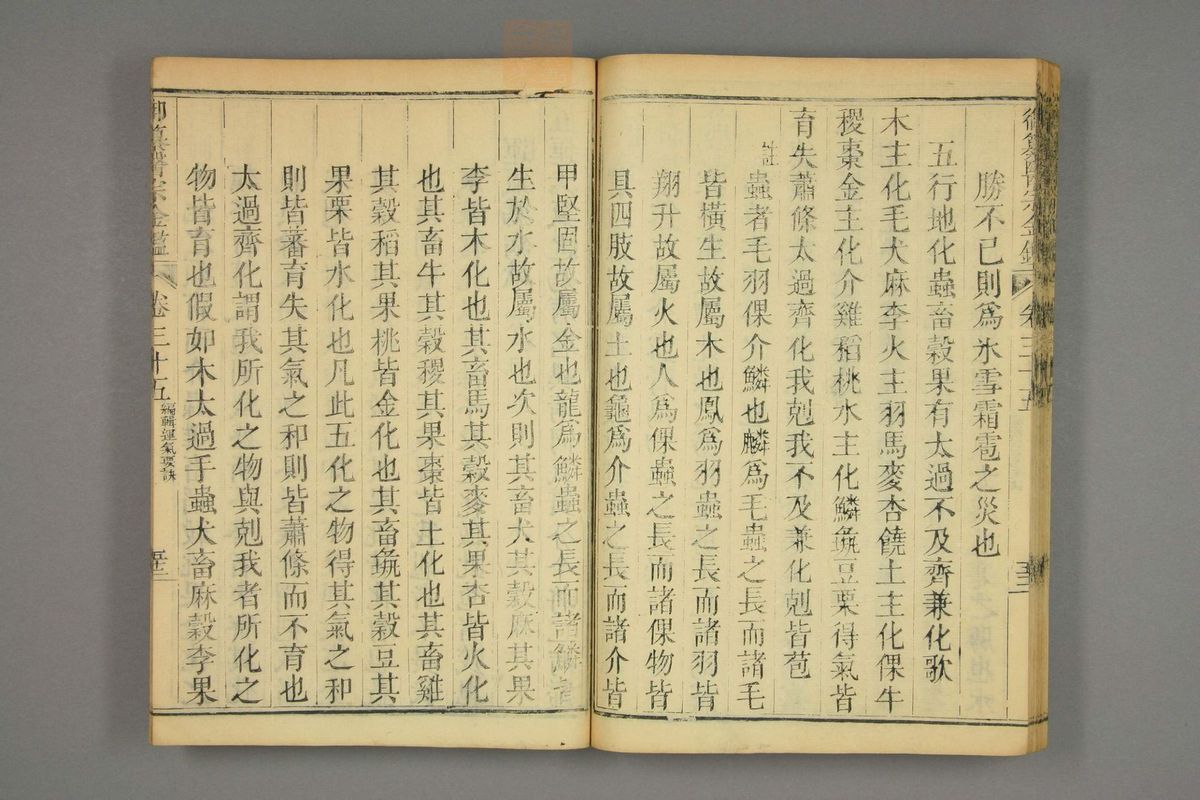 勝不已則爲氷雪霜雹之災也
五行地化蟲畜穀果有太過不及齊兼化歌
木主化毛犬麻李火主羽馬麥杏饒土主化倮牛
稷棗金主化介雞稻桃水主化鱗彘豆栗得氣皆
育失蕭條太過齊化我剋我不及兼化剋皆苞
註
蟲者毛羽倮介鱗也麟爲毛蟲之長而諸毛
皆橫生故屬木也鳳爲羽蟲之長而諸羽皆
翔升故屬火也人爲倮蟲之長而諸倮物皆
具四肢故屬土也龜爲介蟲之長而諸介皆
甲堅固故屬金也龍爲鱗蟲之長而諸鱗皆
生於水故屬水也次則其畜犬其穀麻其果
李皆木化也其畜馬其穀麥其果杏皆火化
也其畜牛其穀稷其果棗皆土化也其畜雞
其穀稻其果桃皆金化也其畜彘其穀豆其
果栗皆水化也凡此五化之物得其氣之和
則皆蕃育失其氣之和則皆蕭條而不育也
太過齊化謂我所化之物與剋我者所化之
物皆育也假如木太過手蟲犬畜麻穀李果
御纂醫宗金鑑
卷三十五
編輯運氣要訣